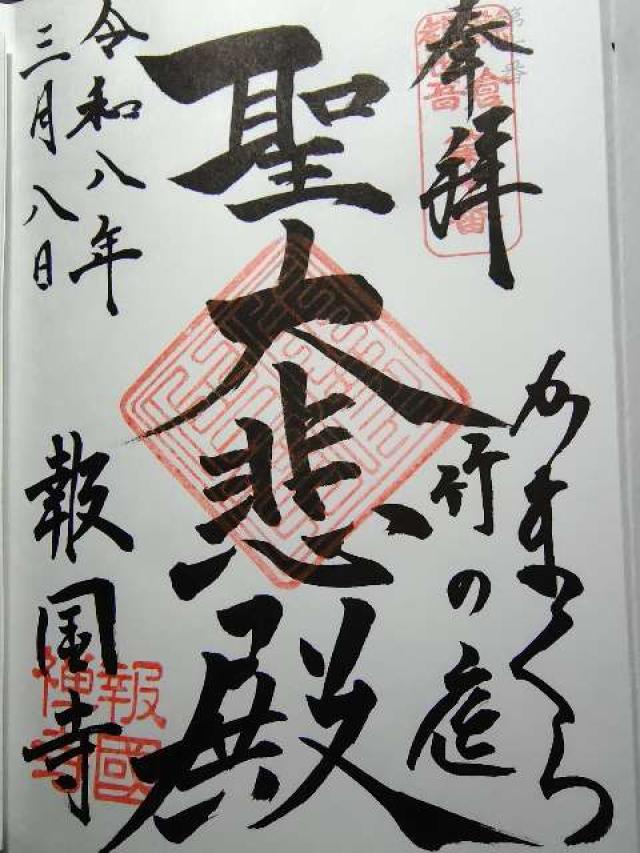 奉拝
かまくら
竹の庭
聖大悲殿
令和八年
三月八日
報国寺
報國
禅寺